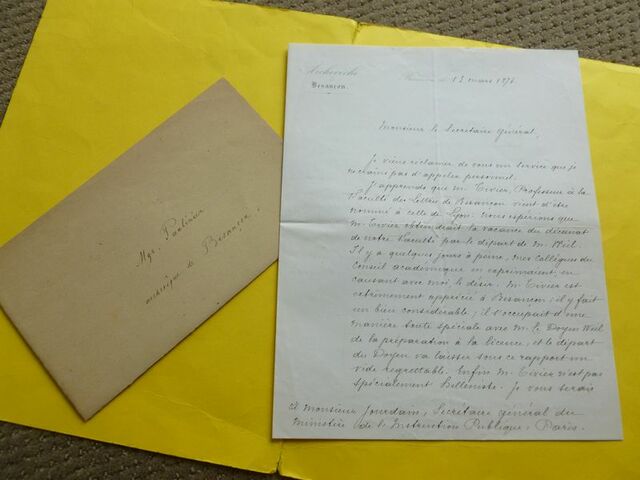 Mgr. Paulinier
archevêque de Besançon
Archevêché
Besançon.
13 mars 1876
Monsieur le Secrétaire Général,
Je viens réclamer de vous un service que je
ne crains pas d'appeler personnel.
J'apprends que M. Tivier, Professeur à la
Faculté des Lettres de Besançon vient d'être
nommé à celle de Lyon. Nous espérions que
M. Tivier obtiendrait la vacance du décanat
de notre Faculté par le départ de M. Weil.
Il y a quelques jours à peine, mes collègues du
Conseil académique en exprimaient, en
causant avec moi, le désir. M. Tivier est
extrêmement apprécié à Besançon; il y fait
un bien considérable; il s'occupait d'une
manière toute spéciale avec M. le Doyen Weil
de la préparation à la licence, et le départ
du Doyen va laisser sous ce rapport un
vide regrettable. Enfin M. Tivier n'est pas
spécialement Helleniste. Je vous serais
A Monsieur Jourdain, Secrétaire général du
Ministère de l'Instruction Publique, Paris.